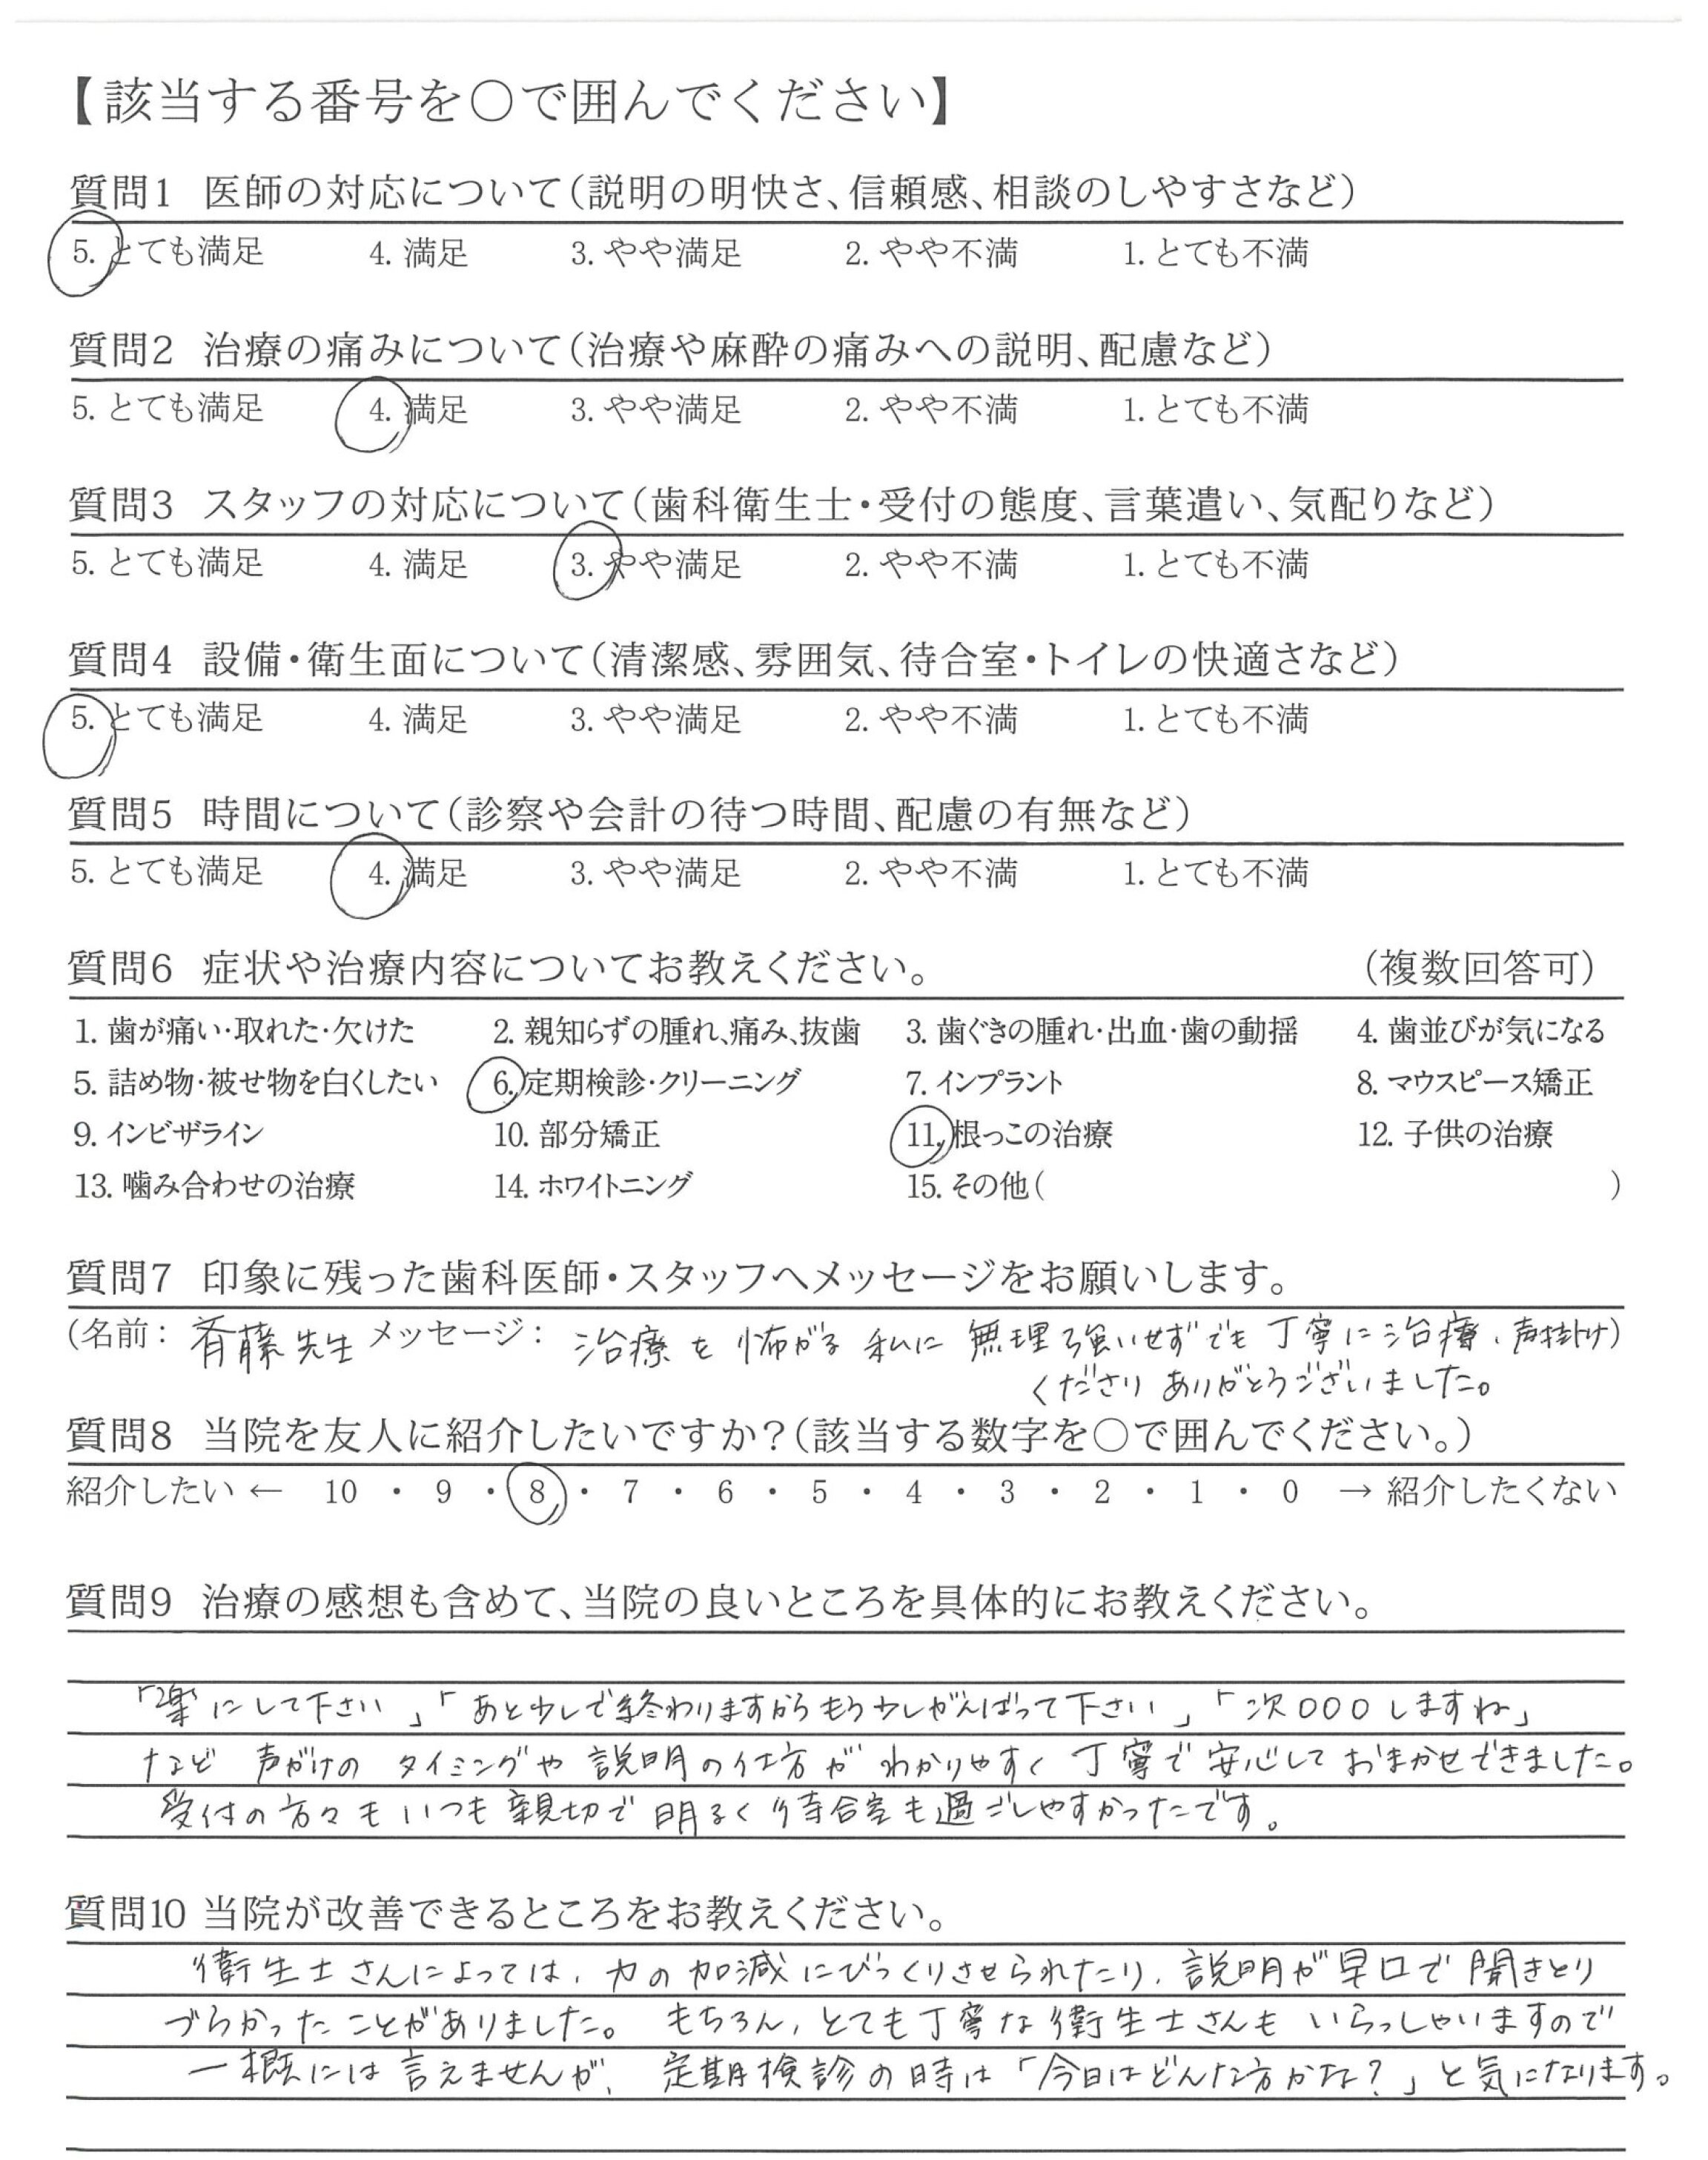 【該当する番号を○で囲んでください】
質問1 医師の対応について(説明の明快さ、信頼感、相談のしやすさなど)
5. とても満足 4. 満足 3. やや満足 2. やや不満 1. とても不満
質問2 治療の痛みについて(治療や麻酔の痛みへの説明、配慮など)
5. とても満足 4. 満足 3. やや満足 2. やや不満 1. とても不満
質問3 スタッフの対応について(歯科衛生士・受付の態度、言葉遣い、気配りなど)
5. とても満足 4. 満足 3. やや満足 2. やや不満 1. とても不満
質問4 設備・衛生面について(清潔感、雰囲気、待合室・トイレの快適さなど)
5. とても満足 4. 満足 3. やや満足 2. やや不満 1. とても不満
質問5 時間について(診察や会計の待つ時間、配慮の有無など)
5. とても満足 4. 満足 3. やや満足 2. やや不満 1. とても不満
質問6 症状や治療内容についてお教えください。 (複数回答可)
1. 歯が痛い・取れた・欠けた 2. 親知らずの腫れ、痛み、抜歯 3. 歯ぐきの腫れ・出血・歯の動揺 4. 歯並びが気になる
5. 詰め物・被せ物を白くしたい 6. 定期検診・クリーニング 7. インプラント 8. マウスピース矯正
9. インビザライン 10. 部分矯正 11. 根っこの治療 12. 子供の治療
13. 噛み合わせの治療 14. ホワイトニング 15. その他( )
質問7 印象に残った歯科医師・スタッフへメッセージをお願いします。
(名前: 斉藤先生 メッセージ: 治療を怖がる私に無理強いせずでも丁寧に治療、声掛け)
くださりありがとうございました。
質問8 当院を友人に紹介したいですか?(該当する数字を○で囲んでください。)
紹介したい ← 10 ・ 9 ・ 8 ・ 7 ・ 6 ・ 5 ・ 4 ・ 3 ・ 2 ・ 1 ・ 0 → 紹介したくない
質問9 治療の感想も含めて、当院の良いところを具体的にお教えください。
「楽にして下さい」「あと少しで終わりますからもう少しがんばって下さい」「次○○○しますね」
など 声がけのタイミングや説明の仕方がわかりやすく丁寧で安心しておまかせできました。
受付の方々もいつも親切で明るく待合室も過ごしやすかったです。
質問10 当院が改善できるところをお教えください。
衛生士さんによっては、力の加減にびっくりさせられたり、説明が早口で聞きとり
づらかったことがありました。もちろん、とても丁寧な衛生士さんもいらっしゃいますので
一概には言えませんが、定期検診の時は「今日はどんな方かな?」と気になります。